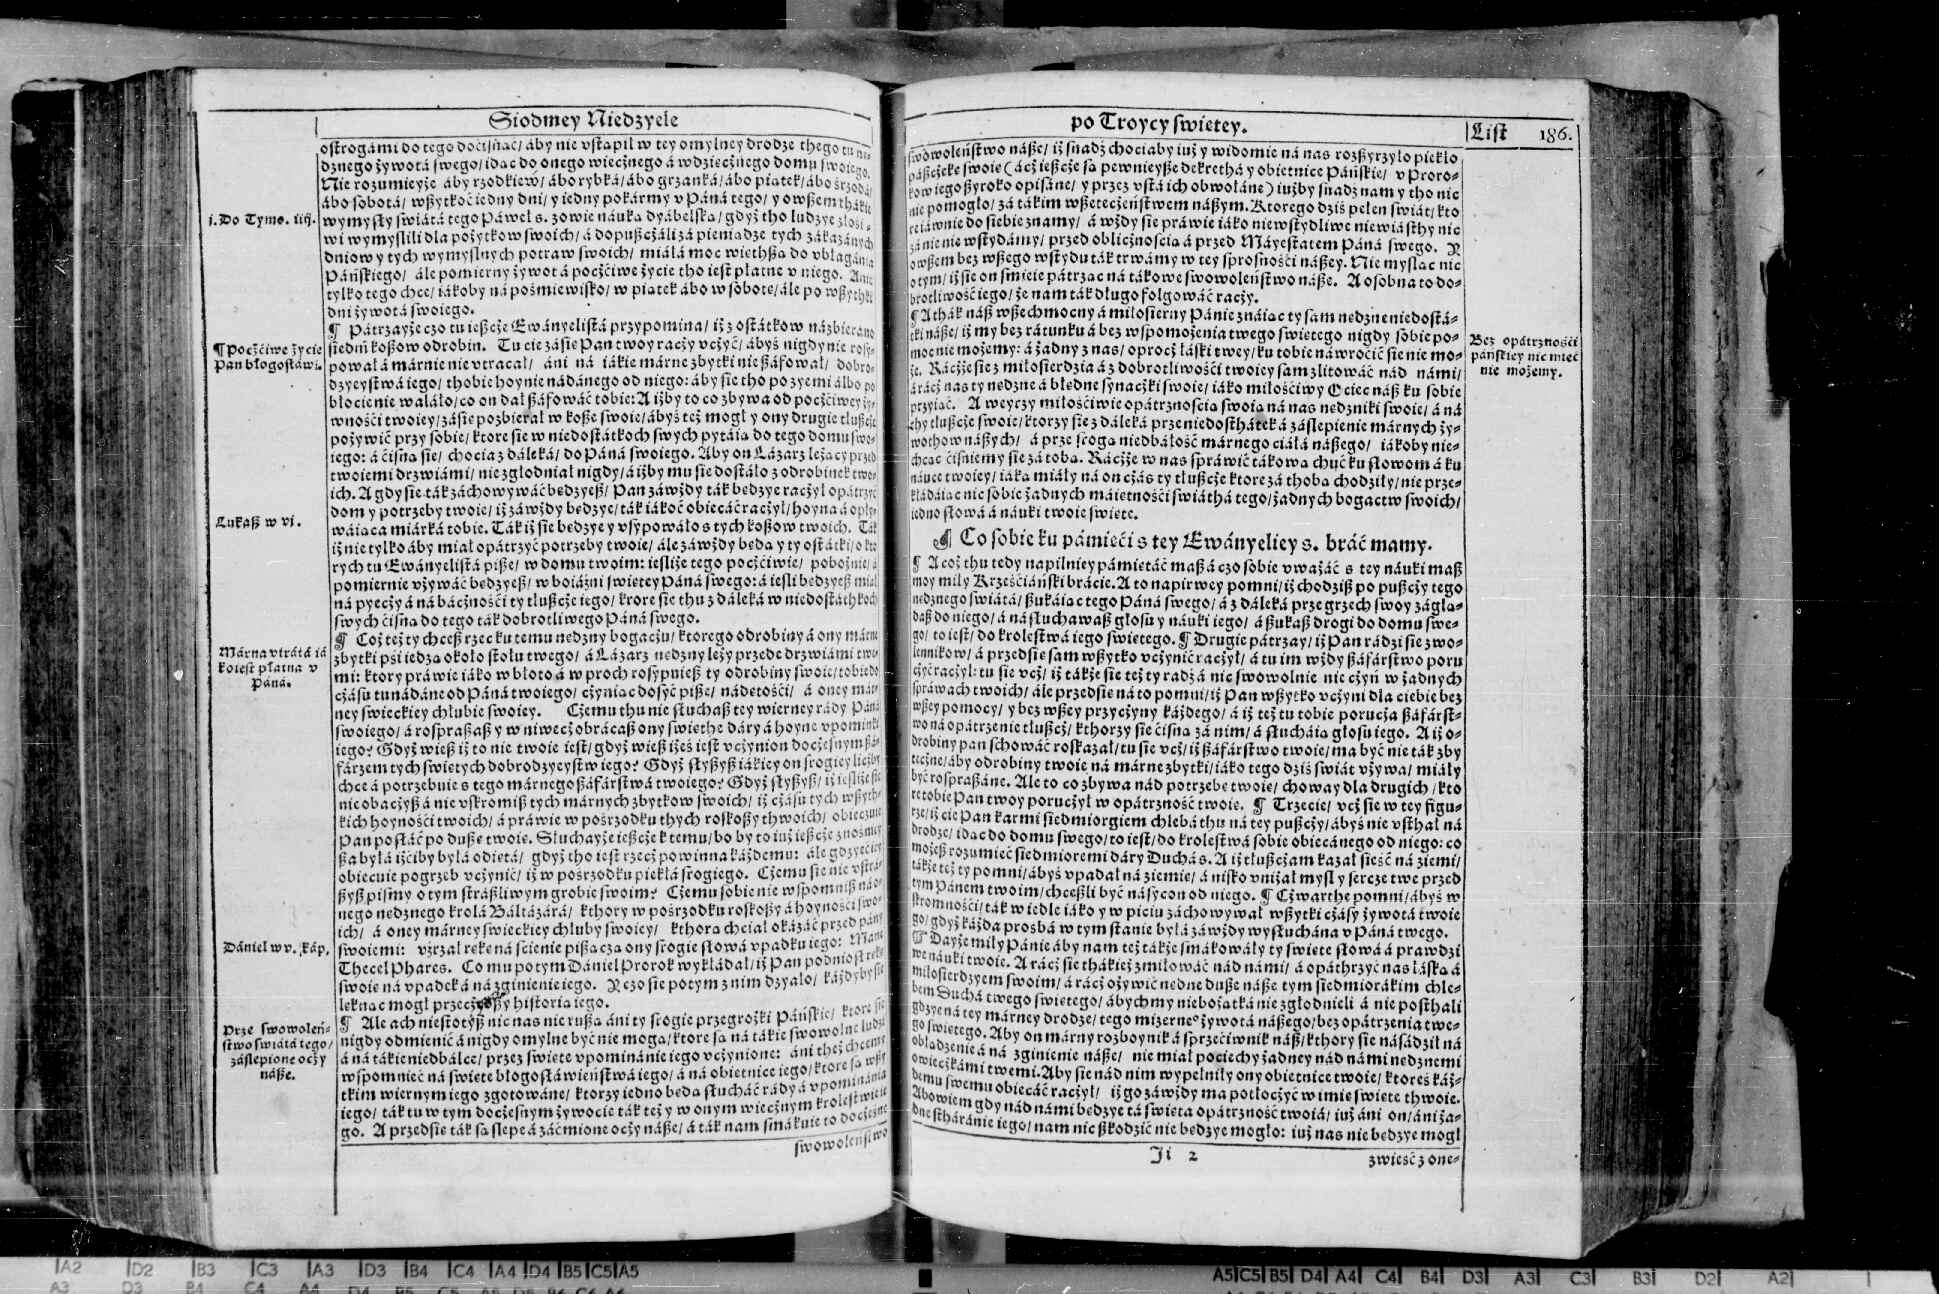 Siodmey Niedzyele
ostrogámi do tego docisnąć/ áby nie vstąpił w tey omylney drodze thego tu
dznego żywotá swego/ idąc do onego wiecznego á wdzięcznego domu swoiego.
Nie rozumieyże áby rzodkiew/ ábo rybká/ ábo grzanká/ ábo piątek/ ábo śrzodá/
ábo sobotá/ wszytkoć iedny dni/ y iedny pokármy v Páná tego/ y owszem tháki
j. Do Tymo. iiij.
wymysły swiátá tego Páweł s. zowie náuką dyabelską/ gdyż tho ludzye złośi-
wi wymyslili dla pożytkow swoich/ á dopuszczáli zá pieniądze tych zákazánych
dniow y tych wymyslnych potraw swoich/ miáłá moc wiethszą do vbłagánia
Páńskiego/ ále pomierny żywot á poczciwe życie tho iest płátne v niego. Ani
tylko tego chce/ iákoby ná pośmiewisko/ w piątek ábo w sobotę/ ále po wszythki
dni żywotá swoiego.
¶ Pátrzayże czo tu ieszcze Ewányelistá przypomina/ iż z ostátkow názbieráno
¶ Poczciwe życie
Pan błogosławi.
siedm koszow odrobin. Tu cie zásie Pan twoy raczy vczyć/ ábyś nigdy nie rosy-
pował á márnie nie vtracał/ áni ná iákie márne zbytki nie száfował/ dobro-
dzyeystwá iego/ thobie hoynie nádánego od niego: áby sie tho po zyemi álbo po
błocie nie wáláło/ co on dał száfowáć tobie: A iżby to co zbywa od poczciwey ży-
wności twoiey/ zásie pozbierał w kosze swoie/ ábyś też mogł y ony drugie tłuszcze
pożywić przy sobie/ ktore sie w niedostátkoch swych pytáią do tego domu swo-
iego: á cisną sie/ chocia z dáleká/ do Páná swoiego. Aby on Lázarz leżący przed
twoiemi drzwiámi/ nie zgłodniał nigdy/ á iżby mu sie dostáło z odrobinek two-
ich. A gdy sie ták záchowywáć będzyesz/ Pan záwżdy ták będzye raczył opátrzyć
Lukasz w vj.
dom y potrzeby twoie/ iż záwżdy będzye/ ták iákoć obiecáć raczył/ hoyna á opły-
wáiąca miárká tobie. Ták iż sie będzye y vsypowáło s tych koszow twoich. Ták
iż nie tylko áby miał opátrzyć potrzeby twoie/ ále záwżdy będą y ty ostátki/ o kto
rych tu Ewányelistá pisze/ w domu twoim: iesliże tego poczciwie/ pobożnie/ á
pomiernie vżywáć będzyesz/ w boiáźni swiętey Páná swego: á iesli będzyesz miał
ná pyeczy á ná báczności ty tłuszcze iego/ krore sie thu z dáleká w niedostáthkoch
swych cisną do tego ták dobrotliwego Páná swego.
¶ Coż też ty chcesz rzec ku temu nędzny bogaczu/ ktorego odrobiny á ony márne
Márna vtrátá iá
ko iest płatna v
Páná.
zbytki psi iedzą około stołu twego/ á Lázarz nędzny leży przede drzwiámi two-
mi: ktory práwie iáko w błoto á w proch rosypuiesz ty odrobiny swoie/ tobie do
czásu tu nádáne od Páná twoiego/ czyniąc dosyć pisze/ nádętości/ á oney már-
ney swieckiey chłubie swoiey. Czemu thu nie słuchasz tey wierney rády Páná
swoiego/ á rospraszasz y w niwecz obracasz ony swięthe dáry á hoyne vpominki
iego? Gdyż wiesz iż to nie twoie iest/ gdyż wiesz iżeś iest vczynion doczesnym szá-
fárzem tych swiętych dobrodzyeystw iego? Gdyż słyszysz iákiey on srogiey liczby
chce á potrzebuie s tego márnego száfárstwá twoiego? Gdyż słyszysz/ iż iesliże sie
nie obaczysz á nie vskromisz tych márnych zbytkow swoich/ iż czásu tych wszyth-
kich hoyności twoich/ á práwie w pośrzodku thych roskoszy thwoich/ obiecuie
Pan posłáć po duszę twoię. Słuchayże ieszcze k temu/ bo by to iuż ieszcze znośniey
sza byłá iżciby byłá odięta/ gdyż tho iest rzecz powinna káżdemu: ále gdzyeć iey
obiecuie pogrzeb vczynić/ iż w pośrzodku piekłá srogiego. Czemu sie nie vstrá-
szysz pismy o tym strászliwym grobie swoim? Czemu sobie nie wspomnisz ná o-
nego nędznego krolá Báltázárá/ kthory w pośrzodku roskoszy á hoyności swo-
ich/ á oney márney swieckiey chłuby swoiey/ kthorą chciał okázáć przed pány
Dániel w v. káp.
swoiemi: vźrzał rękę ná ścienie piszącą ony srogie słowá vpadku iego: Mane
Thecel Phares. Co mu potym Dániel Prorok wykłádał/ iż Pan podniosł rękę
swoię ná vpadek á ná zginienie iego. Y czo sie potym z nim dzyało/ káżdyby sie
leknąc mogł przeczytawszy historią iego.
¶ Ale ach niestotysz nic nas nie ruszą áni ty srogie przegrożki Páńskie/ ktore sie
Prze swowoleń-
stwo swiátá tego/
záslepione oczy
násze.
nigdy odmienić á nigdy omylne być nie mogą/ ktore są ná tákie swowolne ludzi
á ná tákie niedbálce/ przez swięte vpominánie iego vczynione: áni theż chcemy
wspomnieć ná swięte błogosłáwieństwá iego/ á ná obietnice iego/ ktore są wszy
tkim wiernym iego zgotowáne/ ktorzy iedno będą słucháć rády á vpominánia
iego/ ták tu w tym doczesnym żywocie ták też y w onym wiecznym krolestwie
go. A przedsie ták są slepe á záćmione oczy násze/ á ták nam smákuie to doczesne
swowoleństwo
po Troycy swiętey.
List 186.
swowoleństwo násze/ iż snadź chociaby iuż y widomie ná nas rozszyrzyło piekło
pászczekę swoię (ácz ieszcze są pewnieysze dekrethá y obietnice Páńskie/ v Proro-
kow iego szyroko opisáne/ y przez vstá ich obwołáne) iużby snadź nam y tho nic
nie pomogło/ zá tákim wszeteczeństwem nászym. Ktorego dziś pełen swiát/ kto
re iáwnie do siebie znamy/ á wżdy sie práwie iáko niewstydliwe niewiásthy nic
zá nie nie wstydamy/ przed oblicznością á przed Máyestatem Páná swego. Y
owszem bez wszego wstydu ták trwamy w tey sprosności nászey. Nie mysląc nic
o tym/ iż sie on smieie pátrząc ná tákowe swowoleństwo násze. A osobna to do-
brotliwość iego/ że nam ták długo folgowáć raczy.
¶ A thák nász wszechmocny á miłosierny Pánie znáiąc ty sam nędzne niedostá-
tki násze/ iż my bez rátunku á bez wspomożenia twego swiętego nigdy sobie po-
Bez opátrzności
páńskiey nic mieć
nie możemy.
moc nie możemy: á żadny z nas/ oprocz łáski twey/ ku tobie náwroćić sie nie mo-
że. Raczże sie z miłosierdzia á z dobrotliwości twoiey sam zlitowáć nád námi/
á rácz nas ty nędzne á błędne synaczki swoie/ iáko miłościwy Ociec nász ku sobie
przyiąć. A weyrzy miłościwie opátrznością swoią ná nas nędzniki swoie/ á ná
thy tłuszcze swoie/ ktorzy sie z dáleká prze niedostháteká záslepienie márnych ży-
wothow nászych/ á prze srogą niedbáłość márnego ciáłá nászego/ iákoby nie-
chcąc ciśniemy sie zá tobą. Raczże w nas spráwić tákową chuć ku słowom á ku
náuce twoiey/ iáką miáły ná on czás ty tłuszcze ktore zá thobą chodziły/ nie prze-
kłádáiąc nic sobie żadnych máiętności swiáthá tego/ żadnych bogactw swoich/
iedno słowá á náuki twoie swięte.
¶ Co sobie ku pámięci s tey Ewányeliey s. bráć mamy.
¶ A coż thu tedy napilniey pámiętáć masz á czo sobie vważáć s tey náuki masz
moy miły Krześciáński brácie. A to napirwey pomni/ iż chodzisz po puszczy tego
nędznego swiátá/ szukáiąc tego Páná swego/ á z dáleká prze grzech swoy zágla-
dasz do niego/ á násłuchawasz głosu y náuki iego/ á szukasz drogi do domu swe-
go/ to iest/ do krolestwá iego swiętego. ¶ Drugie pátrzay/ iż Pan rádzi sie zwo-
lennikow/ á przedsie sam wszytko vczynić raczył/ á tu im wżdy száfárstwo poru
czyć raczył: tu sie vcz/ iż tákże sie też ty radź á nic swowolnie nie czyń w żadnych
spráwach twoich/ ále przedsie ná to pomni/ iż Pan wszytko vczyni dla ciebie bez
wszey pomocy/ y bez wszey przyczyny káżdego/ á iż też tu tobie porucza száfárst-
wo ná opátrzenie tłuszcz/ kthorzy sie cisną zá nim/ á słucháią głosu iego. A iż o-
drobiny pan schowáć roskazał/ tu sie vcz/ iż száfárstwo twoie/ ma być nie ták zby
teczne/ áby odrobiny twoie ná márne zbytki/ iáko tego dziś swiát vżywa/ miáły
być rospraszáne. Ale to co zbywa nád potrzebę twoię/ choway dla drugich/ kto
re tobie Pan twoy poruczył w opátrzność twoię. ¶ Trzecie/ vcz sie w tey figu-
rze/ iż cie Pan karmi siedmiorgiem chlebá thu ná tey puszczy/ ábyś nie vsthał ná
drodze/ idąc do domu swego/ to iest/ do krolestwá sobie obiecánego od niego: co
możesz rozumieć siedmioremi dáry Duchá s. A iż tłuszczam kazał sieść ná ziemi/
tákże też ty pomni/ ábyś vpadał ná ziemię/ á nisko vniżał mysl y serce twe przed
tym Pánem twoim/ chceszli być násycon od niego. ¶ Czwarthe pomni/ ábyś w
skromności/ ták w iedle iáko y w piciu záchowywał wszytki czásy żywotá twoie
go/ gdyż káżda prosbá w tym stanie byłá záwżdy wysłuchána v Páná twego.
¶ Dayże miły Pánie áby nam też tákże smákowáły ty swięte słowá á prawdzi
we náuki twoie. A rácz sie thákież zmiłowáć nád námi/ á opáthrzyć nas łáską á
miłosierdzyem swoim/ á rácz ożywić nędne dusze násze tym siedmiorákim chle-
bem Duchá twego swiętego/ ábychmy niebożátká nie zgłodnieli á nie posthali
gdzye ná tey márney drodze/ tego mizerneº żywotá nászego/ bez opátrzenia twe-
go swiętego. Aby on márny rozboynik á sprzećiwnik nász/ kthory sie násádził ná
obłądzenie á ná zginienie násze/ nie miał pociechy żadney nád námi nędznemi
owieczkámi twemi. Aby sie nád nim wypełniły ony obietnice twoie/ ktoreś káż-
demu swemu obiecáć raczył/ iż go záwżdy ma potłoczyć w imię swięte thwoie.
Abowiem gdy nád námi będzye tá swięta opátrzność twoiá/ iuż áni on/ áni ża-
dne stháránie iego/ nam nie szkodzić nie będzye mogło: iuż nas nie będzye mogł
Ji 2
zwieść z one-
A2 D2 B3 C3 A3 D3 B4 C4 A4 D4 B5 C5 A5
A5 C5 B5 D4 A4 C4 B4 D3 A3 C3 B3 D2 A2